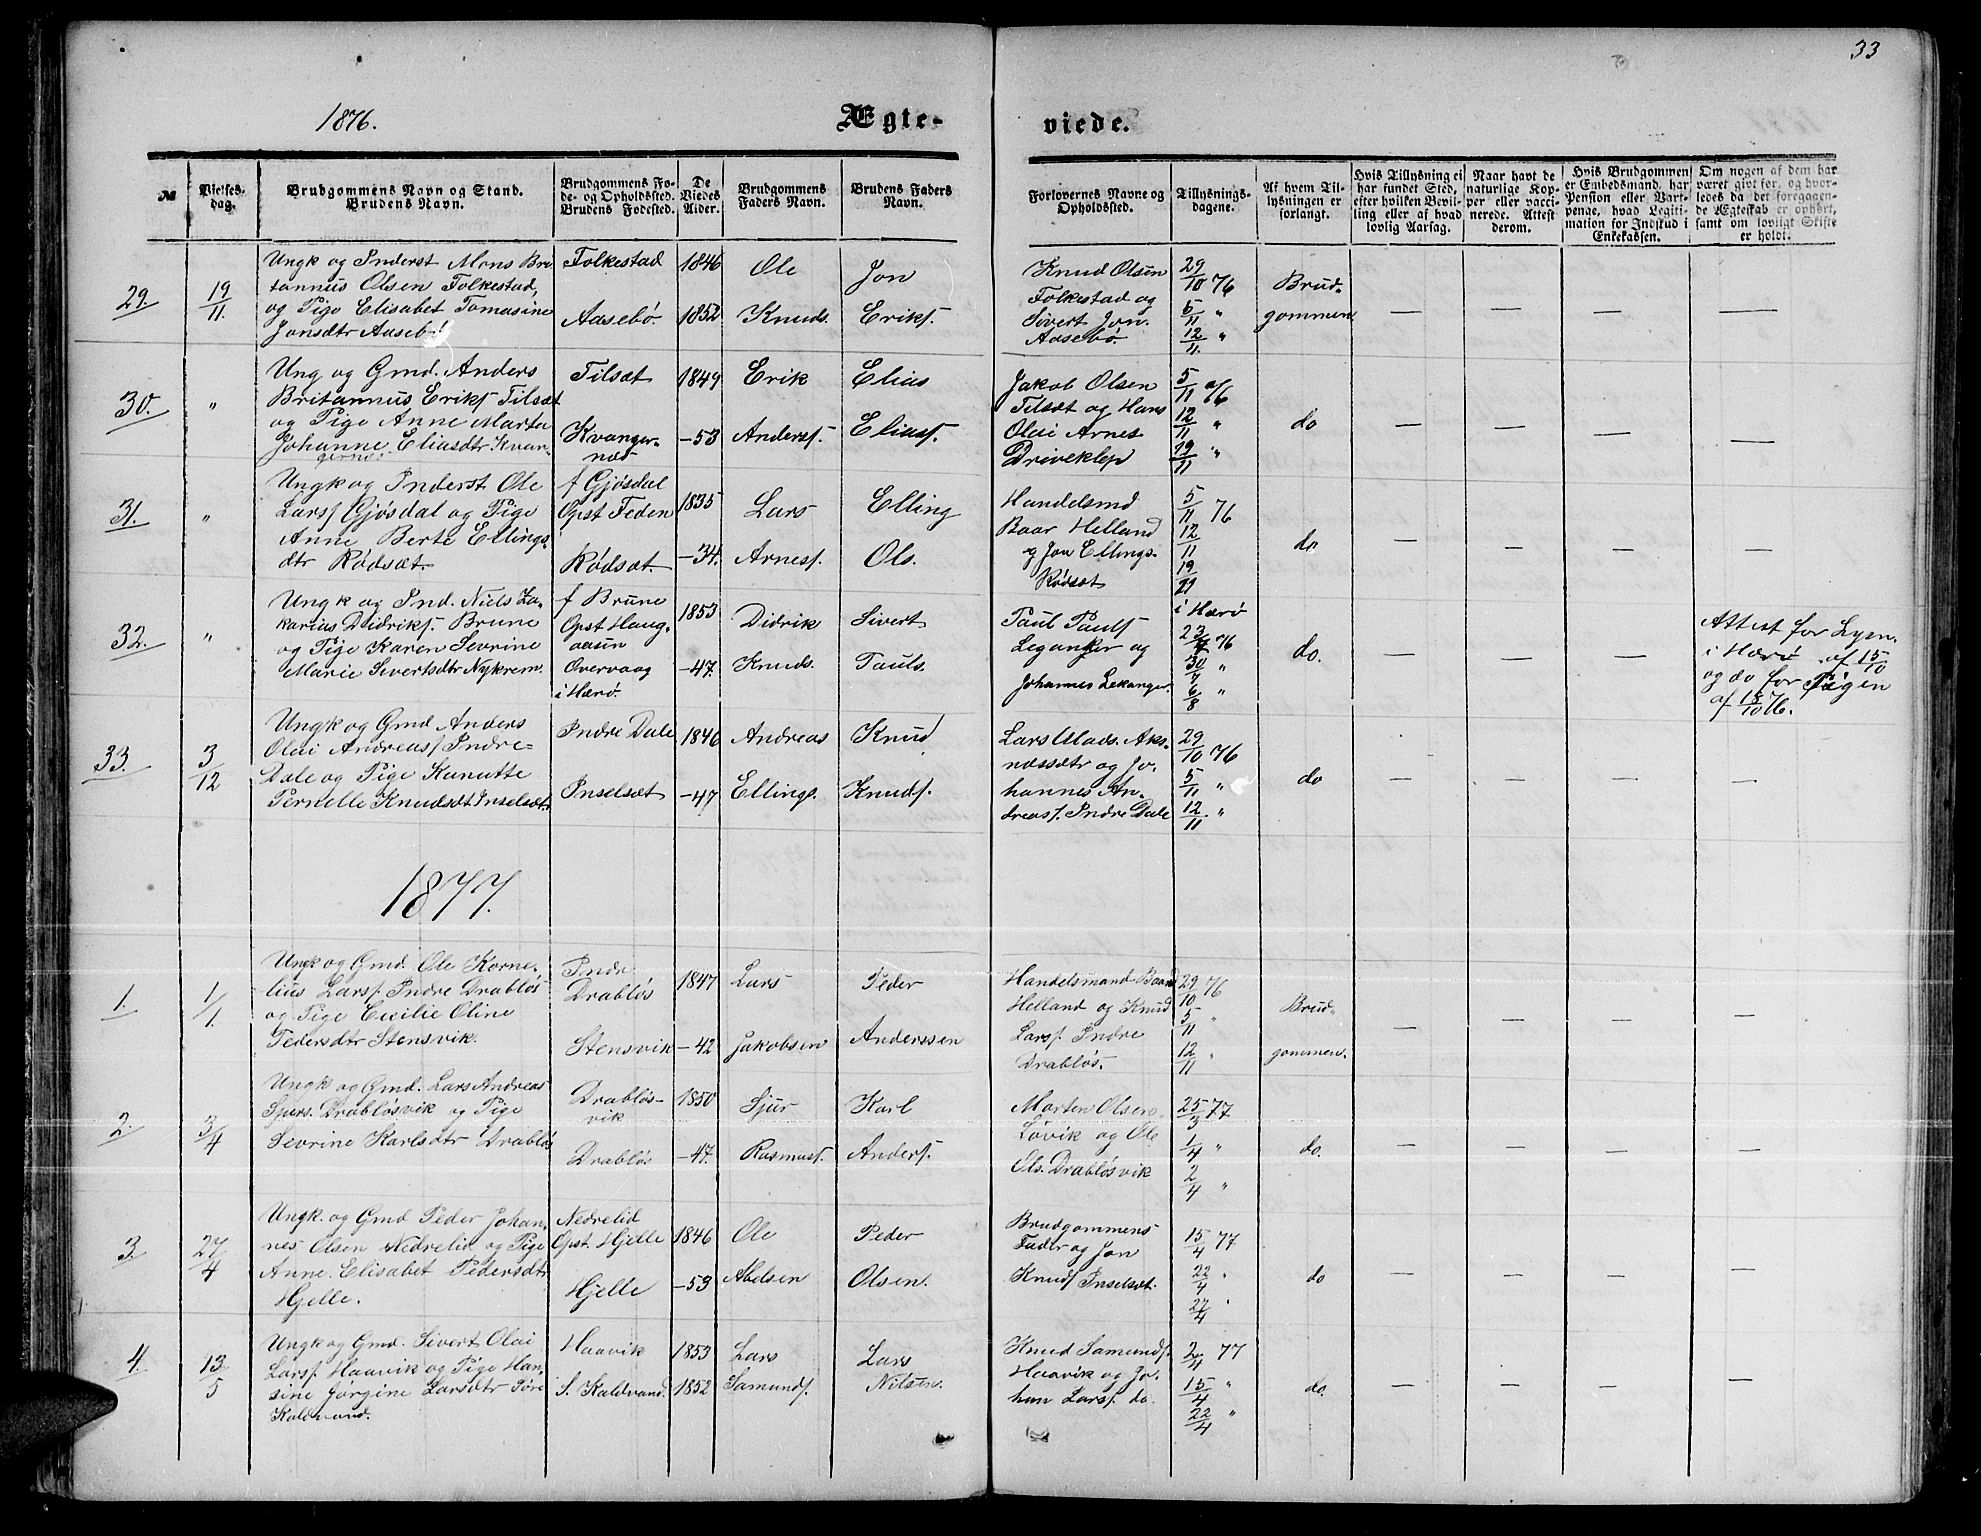 33
1876.
Ægte-
viede.
№
Vielses-
dag.
Brudgommens Navn og Stand.
Brudens Navn.
Brudgommens Fø-
de- og Opholdssted.
Brudens Fødested.
De
Viedes
Alder.
Brudgommens
Faders Navn.
Brudens Faders
Navn.
Forlovernes Navne og
Opholdssted.
Tillysnings-
dagene.
Af hvem Til-
lysningen er
forlangt.
Hvis Tillysning ei
har fundet Sted,
efter hvilken Bevil-
ling eller af hvad
lovlig Aarsag.
Naar havt de
naturlige Kop-
per eller vacci-
nerede. Attest
derom.
Hvis Brudgommen
er Embedsmand, har
Pension eller Vart-
penge, hvad Legiti-
mation for Indskud i
Enkekassen.
Om nogen af dem har
været givt før, og hvor-
ledes da det foregaaen-
de Ægteskab er ophørt,
samt om lovligt Skifte
er holdt.
29.
19/11.
Ungk og Inderst Mons Bri
tannus Olsen Folkestad,
og Pige Elisabet Tomasine
Jonsdtr Aasebö
Folkestad
Aasebö.
1846
1852
Ole
Knuds.
Jon
Eriks.
Knud Olsen
Folkestad og
Sivert Jon.
Aasebö.
29/10 76
5/11 "
12/11 "
Brud-
gommen
— — — —
30.
"
Ung og Gmd. Anders
Britannus Eriks. Tilsæt
og Pige Anne Marta
Johanne Eliasdtr Kvan-
gernes
Tilsæt
Kvanger-
næs
1849
-53
Erik
Anders.
Elias
Elias.
Jakob Olsen
Tilsæt og Hans
Olai Arnes
Driveklep
5/11 76
12/11 "
19/11 "
do
— — — —
31.
"
Ungk og Inderst Ole
Lars. Gjösdal og Pige
Anne Berte Ellings-
dtr Rödsæt.
f Gjösdal
Opst Feden
Rödsæt.
1835
-34.
Lars
Arnes.
Elling
Ols.
Handelsmd
Baar Helland
og Jon Ellings.
Rödsæt
5/11 76
12/11
19/11
do
— — — —
32.
"
Ungk og Ind. Niels Za-
karias Didriks. Brune
og Pige Karen Sevrine
Marie Sivertsdtr Nykrem.
f Brune
Opst Haug-
aasun
Overvaag
i Herö.
1853
-47.
Didrik
Knuds.
Sivert
Pauls.
Paul Pauls
Leganger og
Johannes Lekanger.
i Herö
23/7 76
30/7 "
6/8 "
do.
— — —
Attest for Lysn.
i Herö af 15/10
og do for Pigen
af 15/10 76.
33.
3/12
Ungk og Gmd Anders
Olai Andreas. Indre-
Dale og Pige Kanutte
Pernelle Knudsdt Inselsæt
Indre Dale
Inselsæt
1846
-47
Andreas
Ellings.
Knud
Knuds.
Lars Mads. Aks-
næssætr og Jo-
hannes An-
dreas. Indre Dale
29/10 76
5/11 "
12/11 "
do
— — — —
1877.
1.
1/1.
Ungk og Gmd. Ole Korne-
lius Lars. Indre Drablös
og Pige Cecilie Oline
Pedersdtr Stensvik.
Indr
Drablös
Stensvik
1847
-42
Lars
Jakobsen
Peder
Anderssen
Handelsmand Baard
Helland og Knud
Lars. Indre
Drablös.
29/10 76
5/11 "
12/11 "
Brud-
gommen.
— — — —
2.
3/4
Ungk og Gmd. Lars Andreas
Sjurs. Drablösvik og Pige
Sevrine Karlsdtr Drablös
Drablös-
vik
Drablös
1850
-47.
Sjur
Rasmus.
Karl
Anders.
Morten Olsen
Lövik og Ole
Ols. Drablösvik
25/3 77
1/4 "
2/4 "
do.
— — — —
3.
27/4
Ungk. og Gmd Peder Johan-
nes Olsen Nedrelid og Pige
Anne Elisabet Pedersdtr
Hjelle.
Nedrelid
Opst. Hjelle
Hjelle
1846
-53
Ole
Abelsen
Peder
Olsen.
Brudgommens
Fader og Jon
Knuds Inselsæt.
15/4 77
22/4 "
27/4 "
do
— — — —
4.
13/5
Ungk og Gmd. Sivert Olai
Lars. Haavik og Pige Han-
sine Jorgine Larsdtr Söre
Kaldvand.
Haavik
S. Kaldvand
1853
1852
Lars
Samunds.
Lars
Nilsen.
Knud Samunds.
Haavik og Jo-
han Lars. do.
2/4 77
15/4 "
22/4 "
do.
— — — —